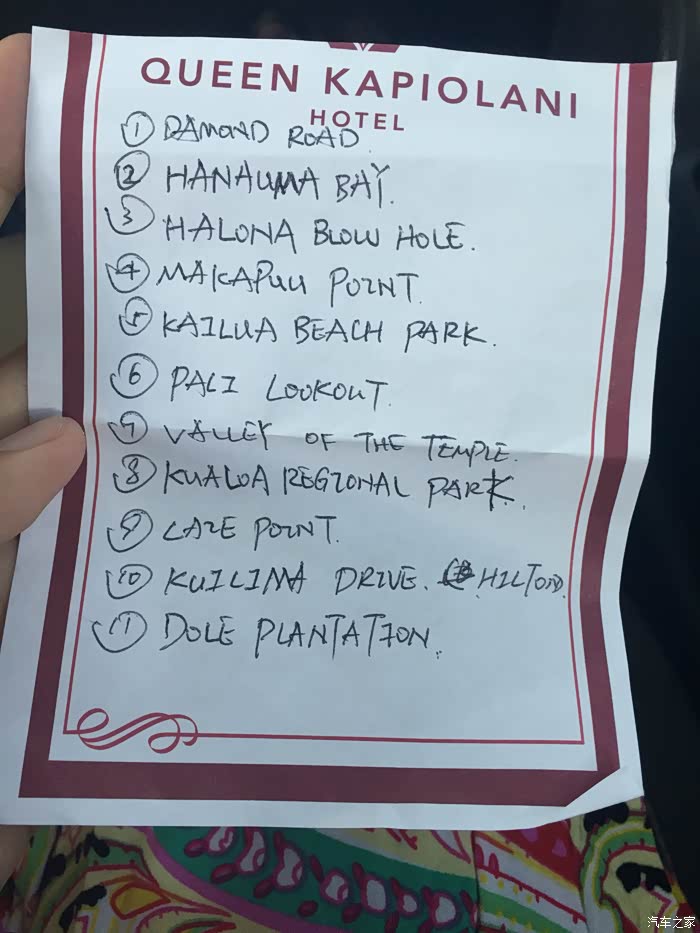 QUEEN KAPIOLANI
HOTEL
① DAMOND ROAD.
② HANAUMA BAY.
③ HALONA BLOW HOLE.
④ MAKAPUU POINT.
⑤ KAILUA BEACH PARK.
⑥ PALI LOOKOUT.
⑦ VALLEY OF THE TEMPLE.
⑧ KUALOA REGIONAL PARK.
⑨ LAIE POINT.
⑩ KUILIMA DRIVE. HILTON.
⑪ DOLE PLANTATION.
汽车之家